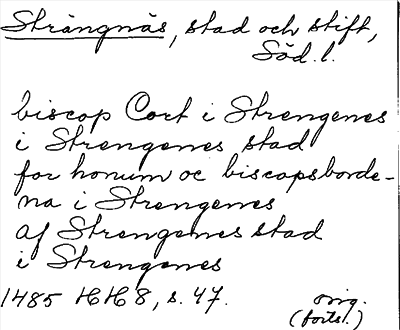 Strängnäs, stad och stift,
Söd. l.
biscop Cort i Strengenes
i Strengenes stad
for honum oc biscopsborde-
na i Strengenes
af Strengenes stad
i Strengenes
1485 HH8, s. 47. orig.
(forts.)